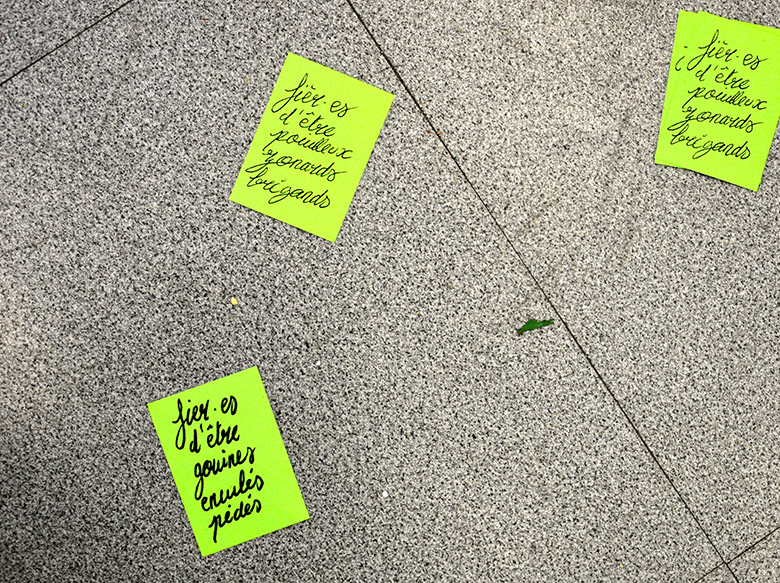 fièr·es
d'être
pouilleux
zonards
brigands
fièr·es
d'être
pouilleux
zonards
brigands
fier·es
d'être
gouines
enculés
pédés